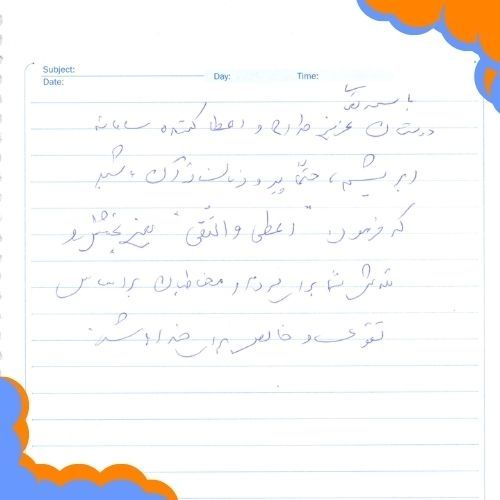 Subject:
Date:
Day:
Time:
باسمه تعالی
دوستان عزیز طراح و اعطا کننده سامانه
ابریشم، حتماً پیرو زبان قرآن باشید
که فرمود: "اعطی واتّقی" یعنی بخشش و
تلاش شما برای مردم و مخاطبان براساس
تقوی و خالص برای خدا باشد.